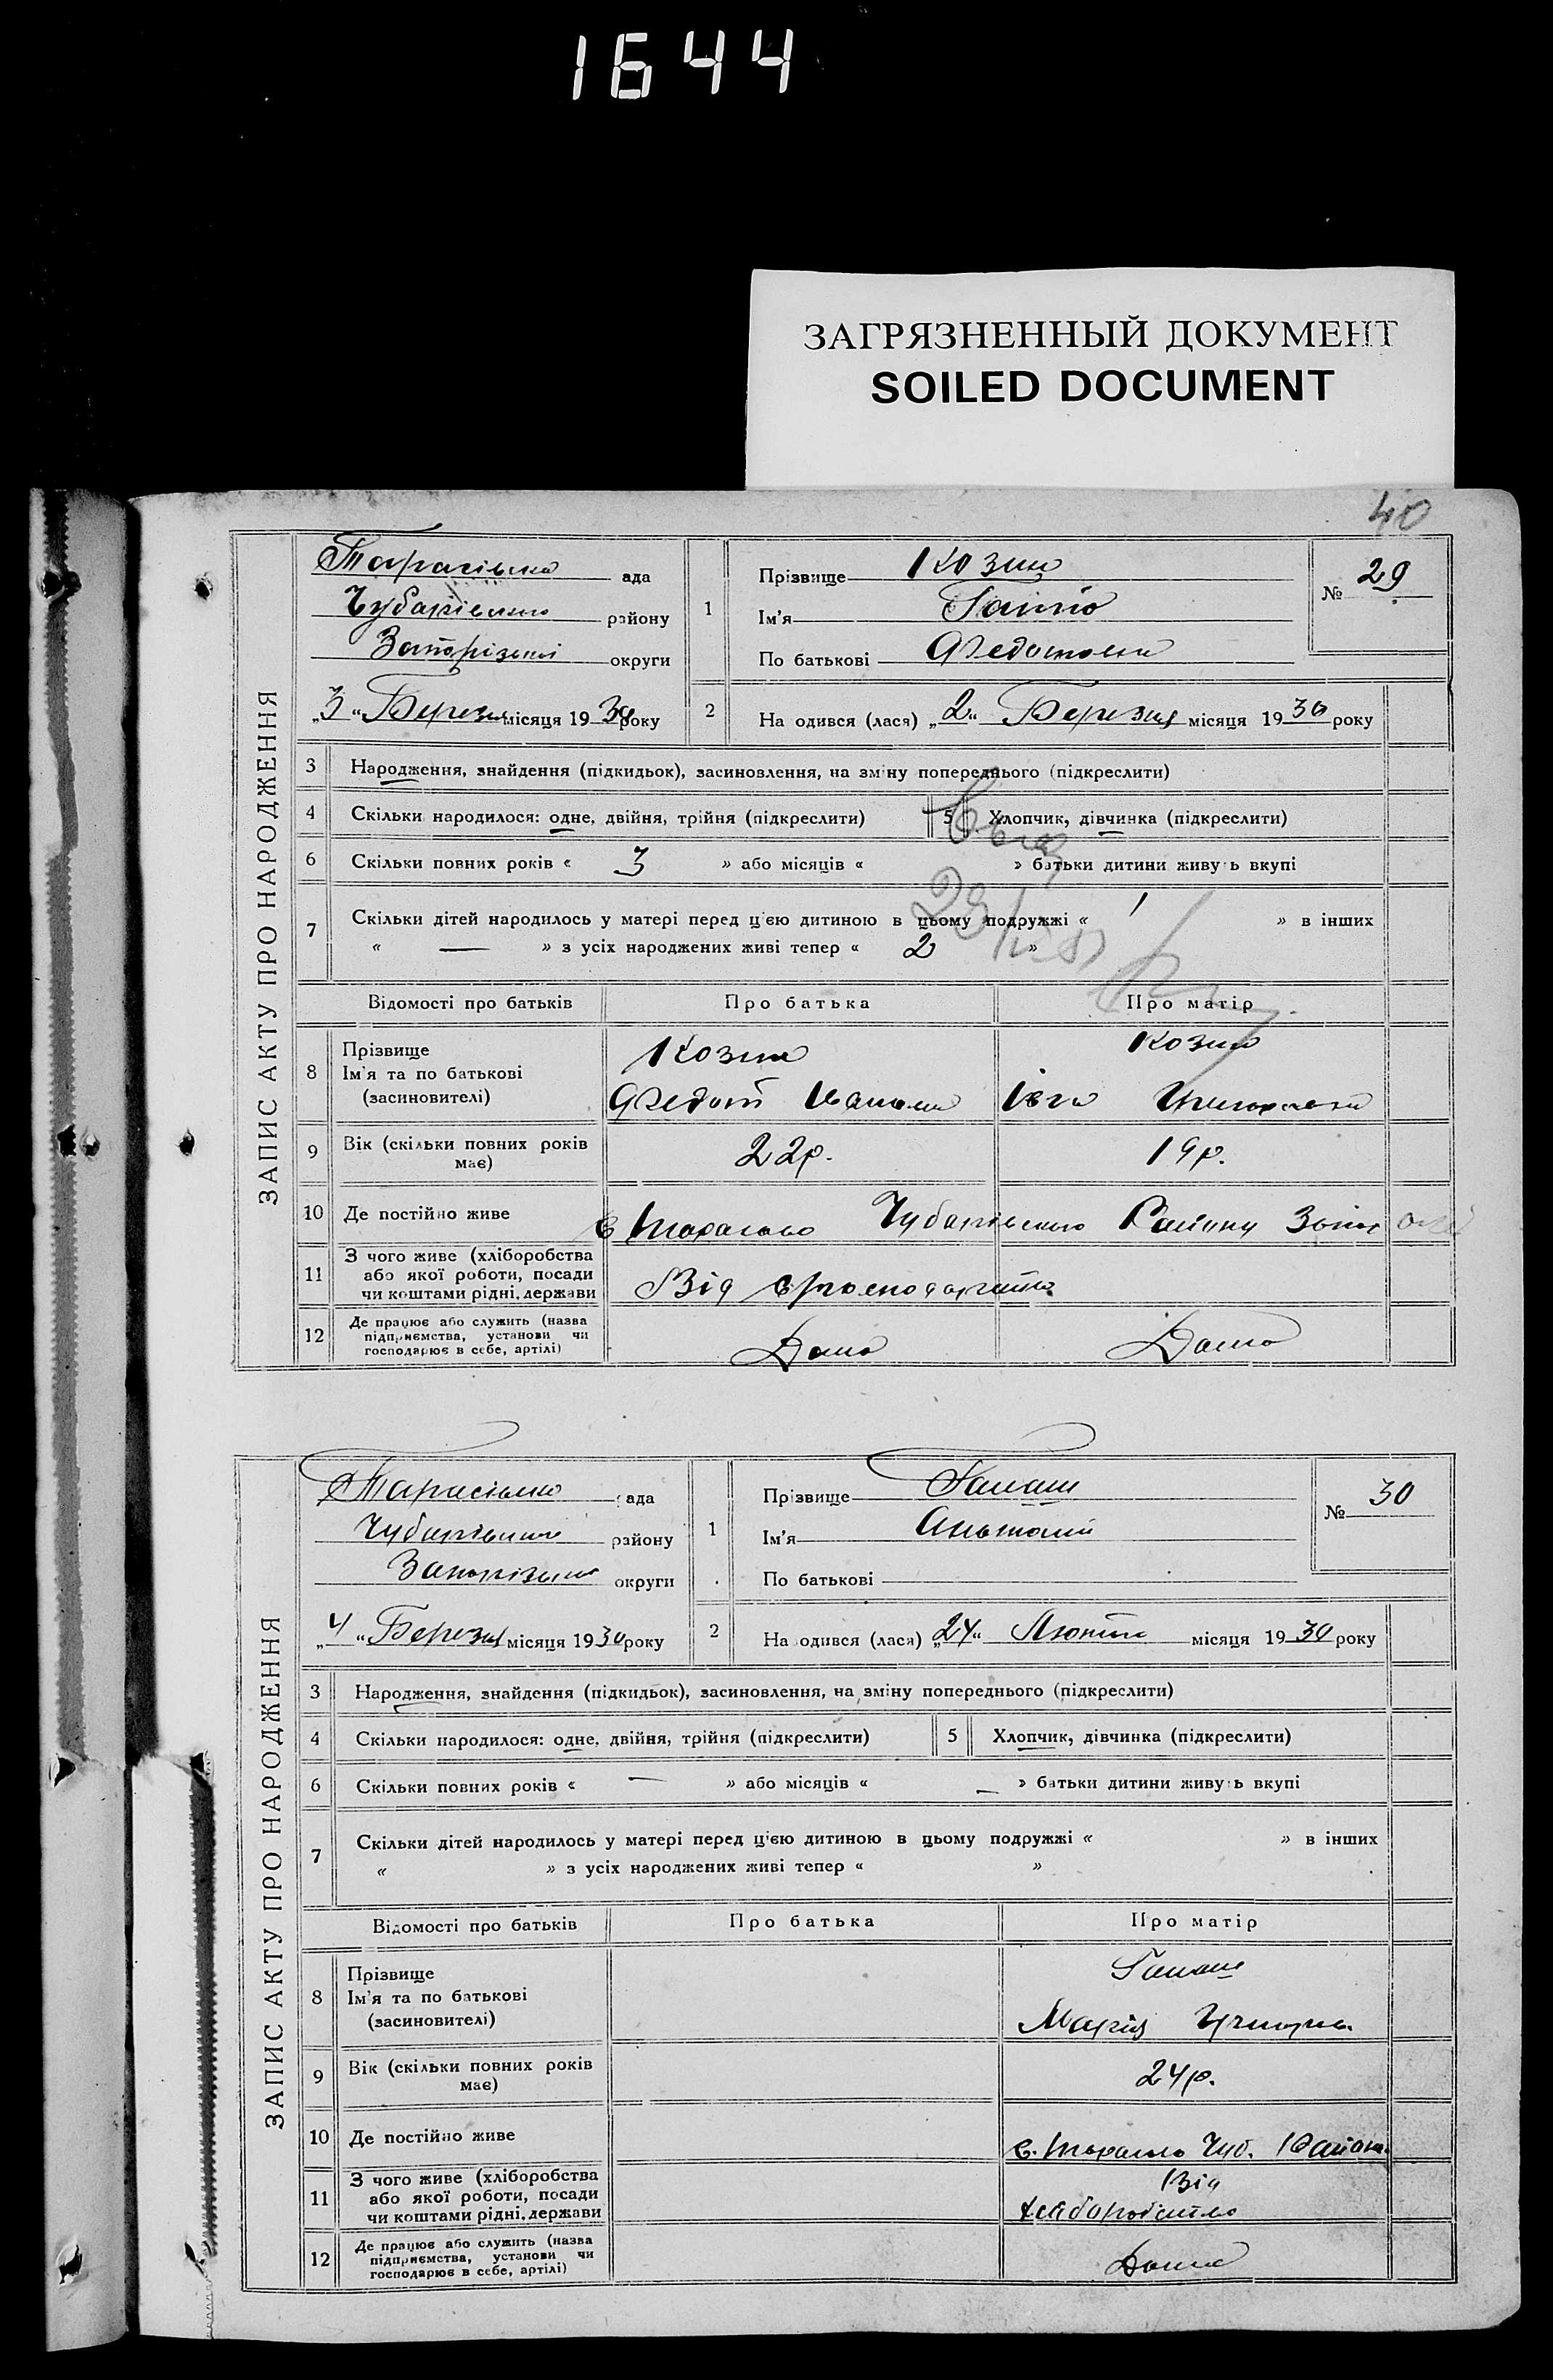 1644
ЗАГРЯЗНЕННЫЙ ДОКУМЕНТ
SOILED DOCUMENT
40
ЗАПИС АКТУ ПРО НАРОДЖЕННЯ
Тарасівка ада
Чубарівського району
Запорізької округи
„3“ Березня місяця 1930 року
1
Прізвище Козин
Ім'я
По батькові Федотовна
№ 29
2
На одився (лася) „2“ Березня місяця 1930 року
3 Народження, знайдення (підкидьок), засиновлення, на зміну попереднього (підкреслити)
4 Скільки народилося: одне, двійня, трійня (підкреслити)
5 Хлопчик, дівчинка (підкреслити)
6 Скільки повних років « 3 » або місяців « » батьки дитини живуть вкупі
7 Скільки дітей народилось у матері перед цією дитиною в цьому подружжі « 1 » в інших
« — » з усіх народжених живі тепер « 2 »
Відомості про батьків Про батька Про матір
8 Прізвище Козин Козин
Ім'я та по батькові Федот Іванов Івга Григоровна
(засиновителі)
9 Вік (скільки повних років має) 22р. 19р.
10 Де постійно живе с Тарасівка Чубарівського Району Запор
11 З чого живе (хліборобства
або якої роботи, посади Від
чи коштами рідні, держави
12 Де працює або служить (назва
підприємства, установи чи Дома Дома
господарює в себе, артілі)
ЗАПИС АКТУ ПРО НАРОДЖЕННЯ
Тарасівка ада
Чубарівського району
Запорізької округи
„4“ Березня місяця 1930 року
1
Прізвище
Ім'я Анатолій
По батькові
№ 30
2
На одився (лася) „24“ Лютого місяця 1930 року
3 Народження, знайдення (підкидьок), засиновлення, на зміну попереднього (підкреслити)
4 Скільки народилося: одне, двійня, трійня (підкреслити)
5 Хлопчик, дівчинка (підкреслити)
6 Скільки повних років « — » або місяців « — » батьки дитини живуть вкупі
7 Скільки дітей народилось у матері перед цією дитиною в цьому подружжі « » в інших
« » з усіх народжених живі тепер « »
Відомості про батьків Про батька Про матір
8 Прізвище
Ім'я та по батькові Марія Григорів.
(засиновителі)
9 Вік (скільки повних років має) 24р.
10 Де постійно живе с. Тарасівка Чуб. Району
11 З чого живе (хліборобства Від
або якої роботи, посади хліборобства
чи коштами рідні, держави
12 Де працює або служить (назва
підприємства, установи чи Дома
господарює в себе, артілі)